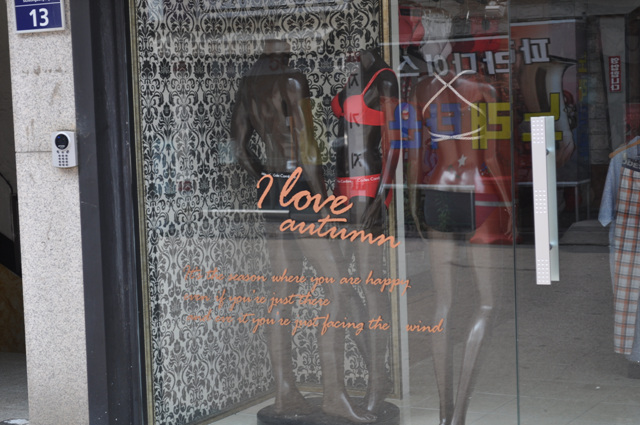 13
파라다이스
I love
autumn
the season where you are happy
if you're just there
you're just facing the wind